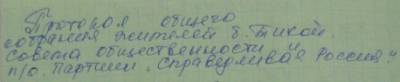 Протокол общего
собрания жителей б. Тихой.
Совета общественности
п/о. Партии „Справедливая Россия."